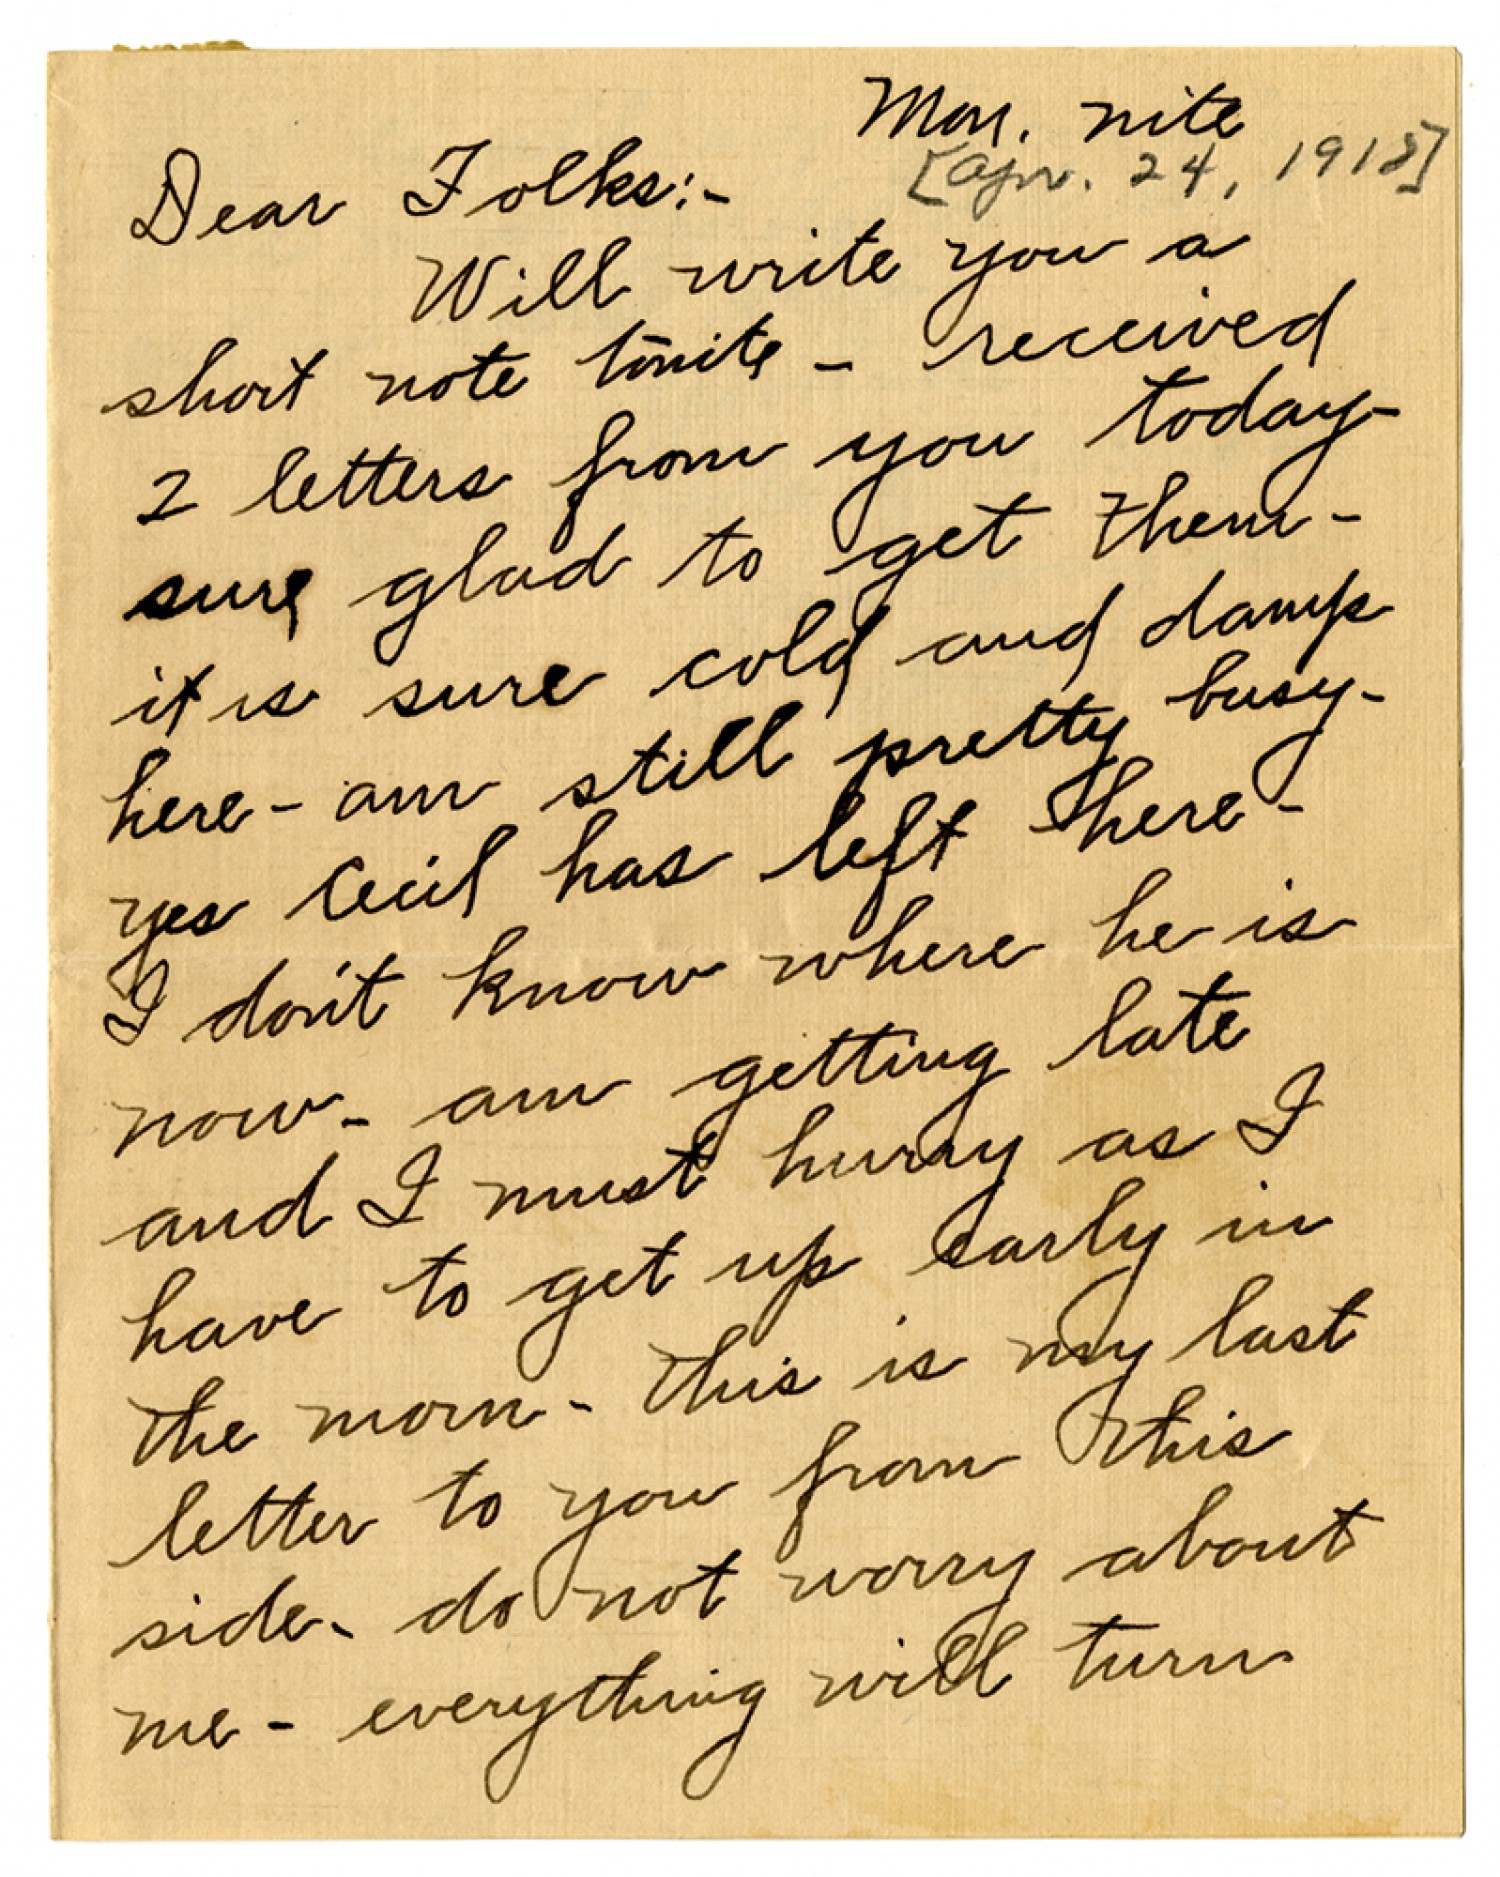 Mon. nite
[Apr. 24, 1918]
Dear Folks:-
Will write you a
short note tonite - received
2 letters from you today-
sure glad to get them-
it is sure cold and damp
here - am still pretty busy-
yes Cecil has left here-
I don't know where he is
now - am getting late
and I must hurry as I
have to get up early in
the morn - this is my last
letter to you from this
side - do not worry about
me - everything will turn